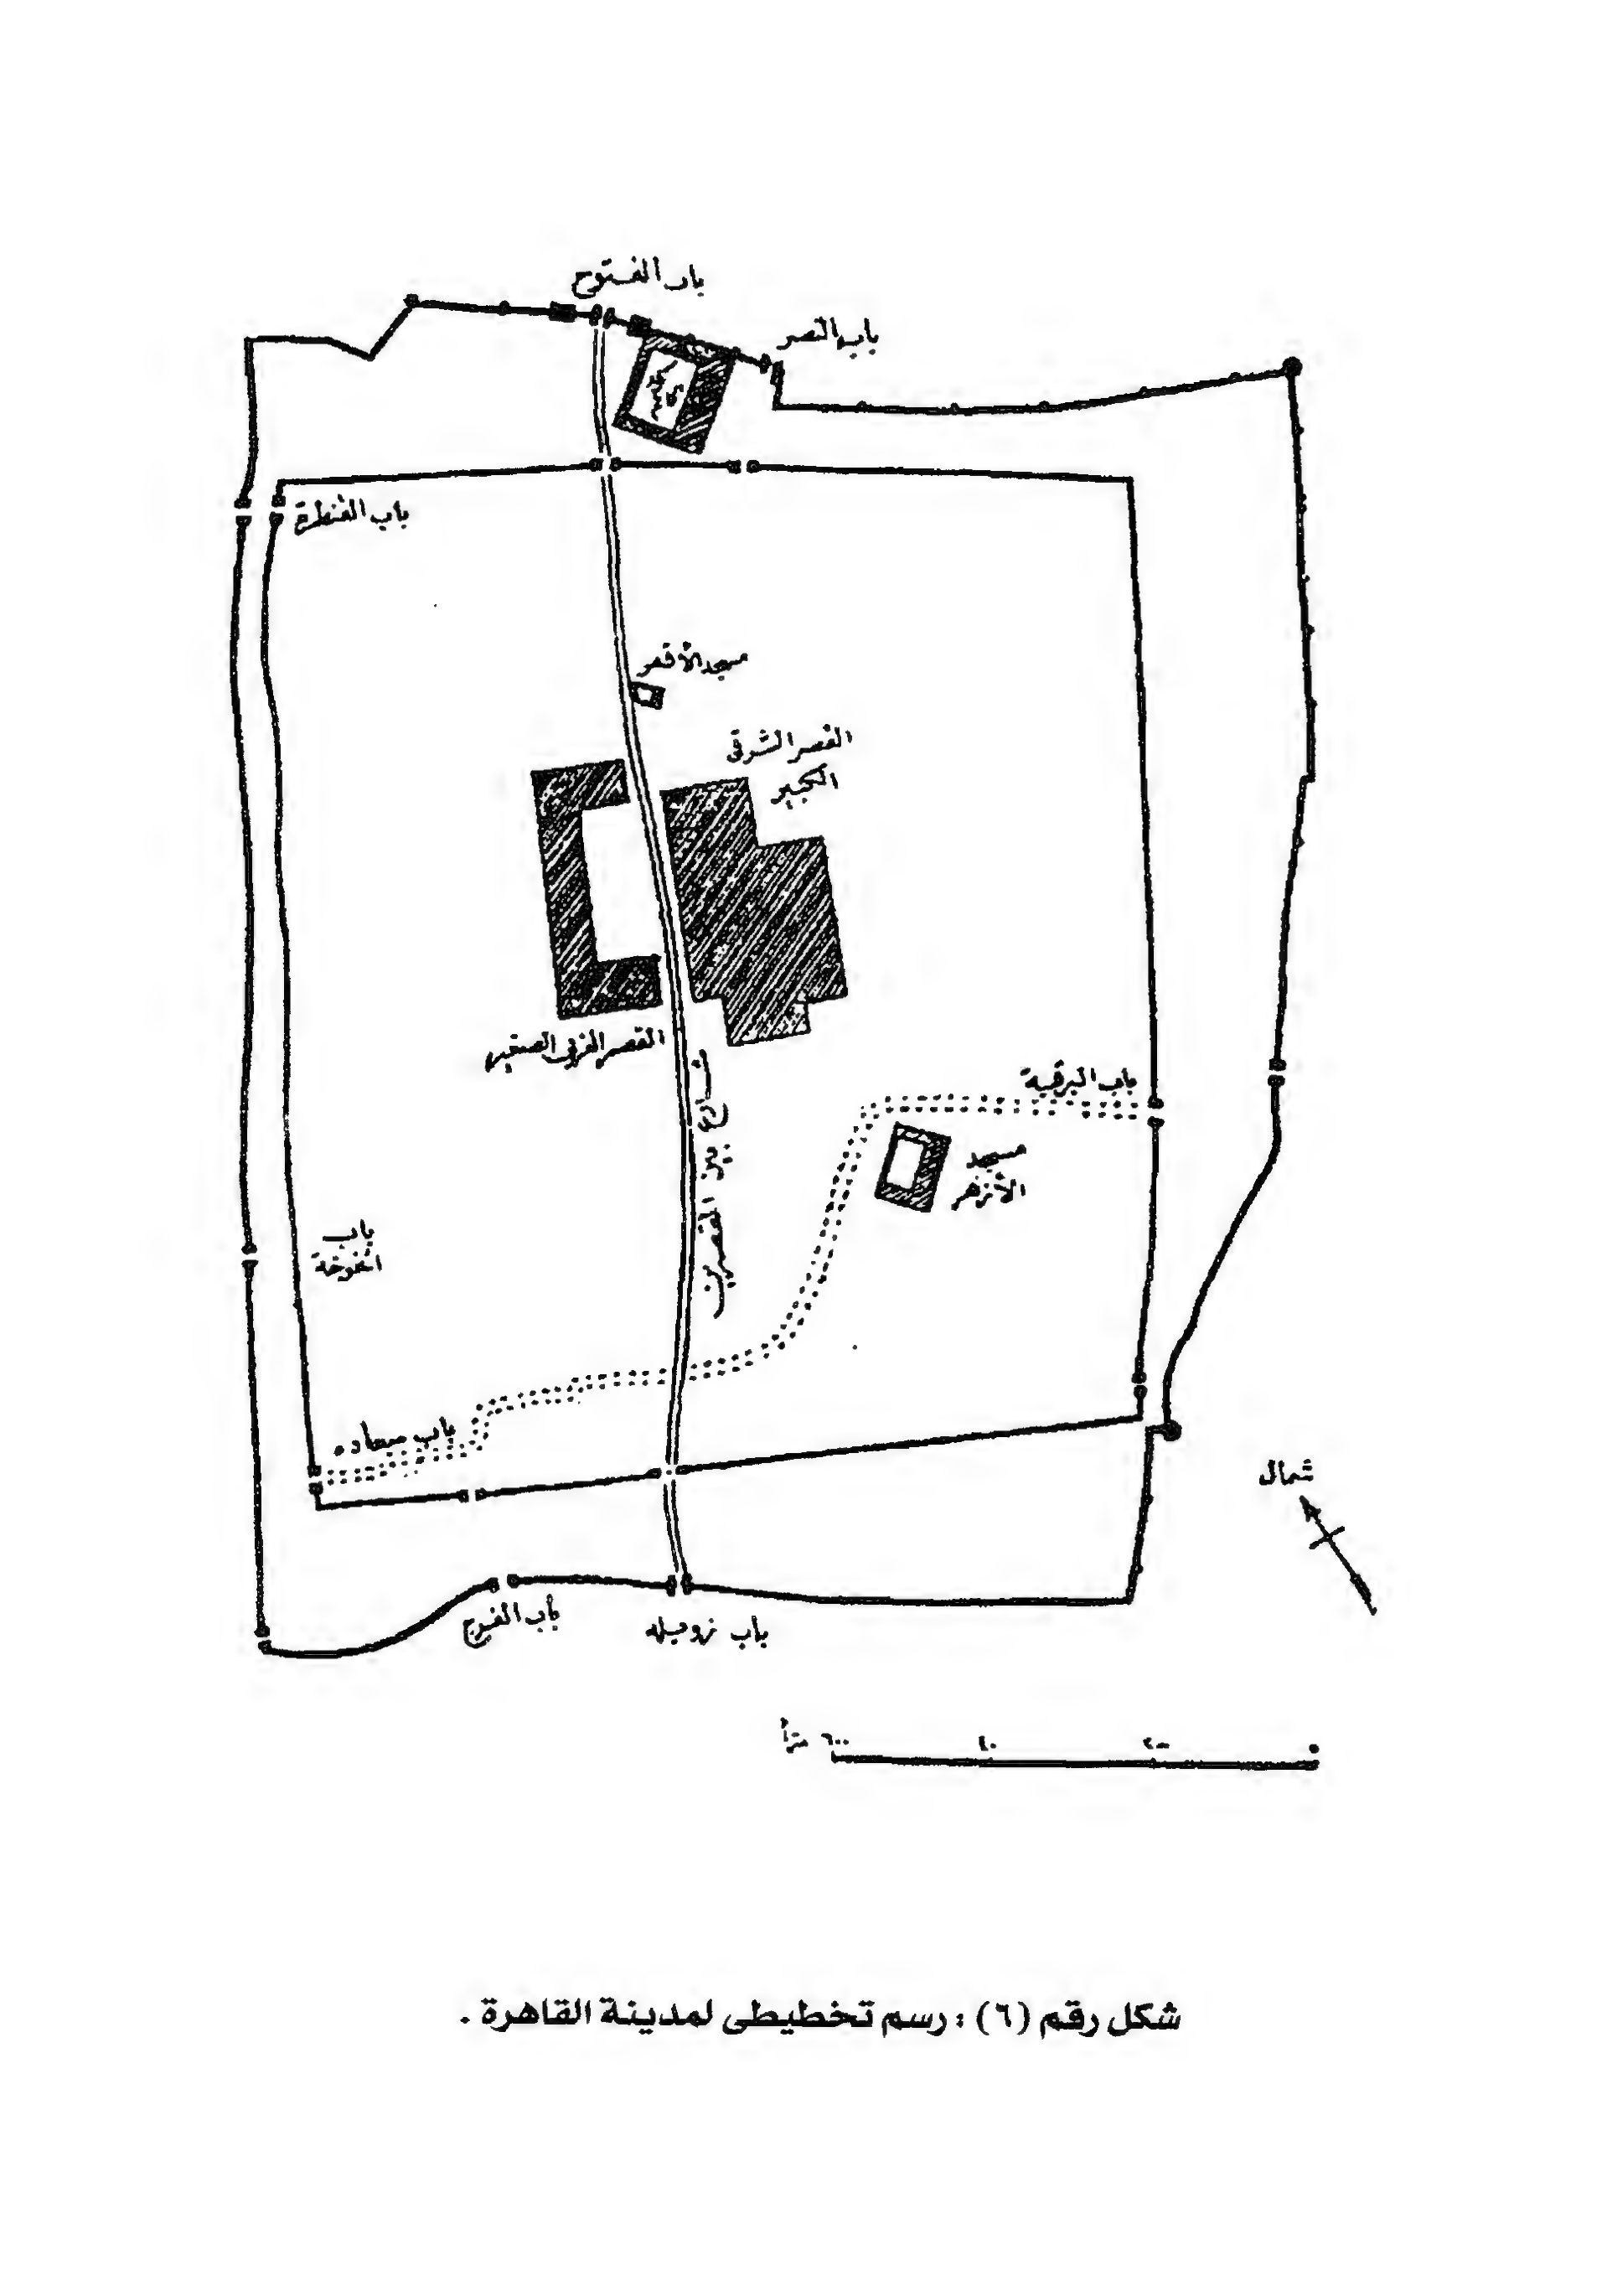 باب الفتوح
باب النصر
باب القنطرة
مسجد الأقمر
القصر الشرقى
الكبير
القصر الغربى الصغير
شارع بين القصرين
باب البرقية
مسجد
الأزهر
باب
الخوخة
باب سعاده
شمال
باب الفرج
باب زويله
٠
٢٠٠
٤٠
٦٠٠ متراً
شكل رقم (٦) : رسم تخطيطى لمدينة القاهرة .